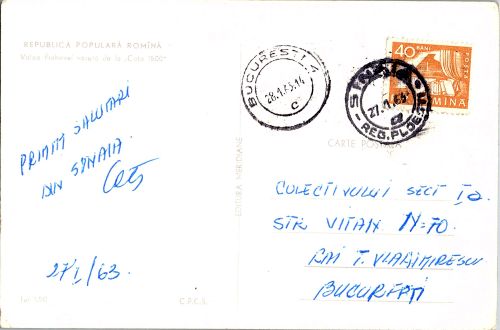 REPUBLICA POPULARĂ ROMÎNĂ
Valea Prahovei văzută de la „Cota 1500”
PRIMIȚI SALUTĂRI
DIN SINAIA
27/I/63.
Lei 1,50
C.P.C.S.
EDITURA MERIDIANE
BUCUREȘTI 4
28.1.63.14
c
SINAIA
27.1.63
REG. PLOEȘTI
40 BANI
POSTA
ROMINA
CARTE POȘTALĂ
COLECTIVULUI SECT I
STR VITAN N-70
RAI T. VLADIMIRESCU
BUCUREȘTI